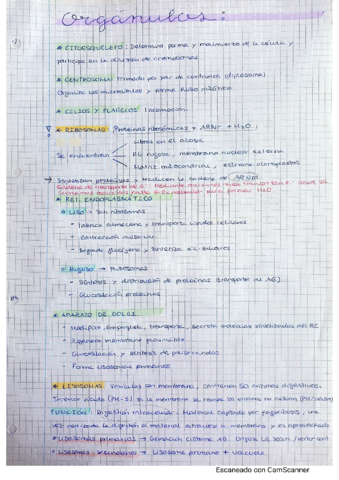 Orgánulos:
* CITOESQUELETO: Determina forma y movimiento de la célula y
participa en la división de cromosomas
* CENTROSOMA: Formado por par de centriolos (diplosoma)
Organiza los microtúbulos y forma huso mitótico
* CILIOS Y FLAGELOS: locomoción.
* RIBOSOMAS: Proteínas ribosómicas + ARNr + H2O.
Se encuentran
libres en el citosol
RE rugoso, membrana nuclear externa
Matriz mitocondrial, estroma cloroplastos
Sintetizan proteínas y traducen la cadena de ARNm
* RET. ENDOPLASMÁTICO
Liso: Sin ribosomas
- Fabrica almacena y transporta lípidos celulares
- Contracción muscular
- Degrada glucógeno y sintetiza ác. biliares
Rugoso → Ribosomas
- Síntesis y distribución de proteínas (transporte au AG)
- Glucosilación proteínas
* APARATO DE GOLGI
- Modifica, empaqueta, transporta, secreta moléculas sintetizadas del RE
- Regenera membrana plasmática
- Glucosilación y síntesis de polisacáridos
- Forma lisosomas primarios
* LISOSOMAS: Vesículas con membrana, contienen 50 enzimas digestivas.
Interior ácido (PH=5) Si la membrana se rompe las enzimas no actúan
FUNCIÓN: Digestión intracelular. Material captado por fagocitosis, una
vez realizada la digestión el material atraviesa la membrana y es aprovechado
Lisosomas primarios → Gemación cisterna AG.
Lisosomas secundarios → Lisosoma primario + vacuola
Escaneado con CamScanner